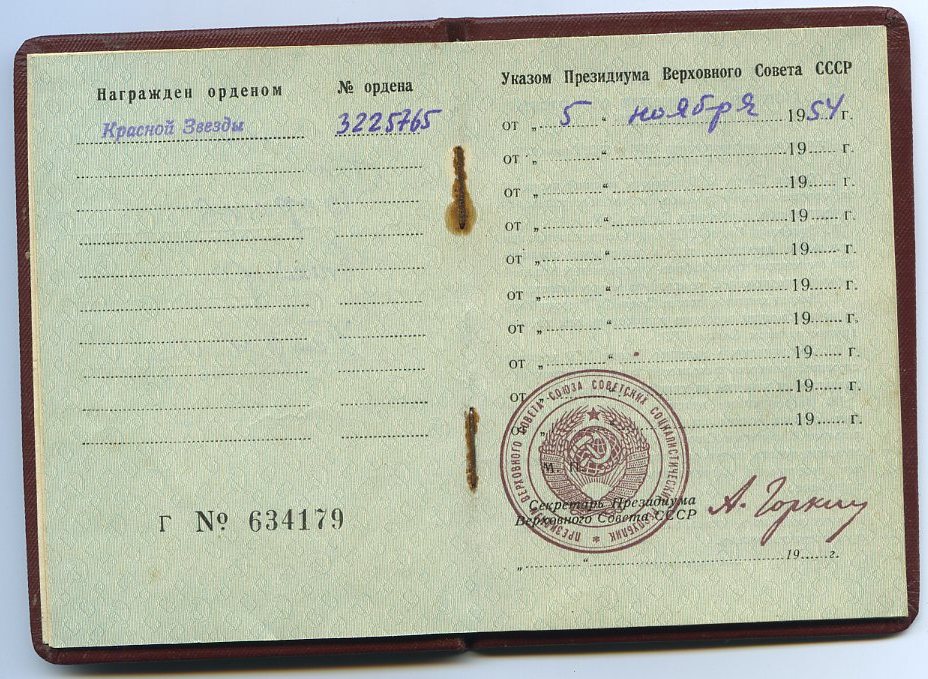 Награжден орденом
№ ордена
Красной Звезды
3225765
Г № 634179
Указом Президиума Верховного Совета СССР
от „ 5 “ ноября 1954 г.
от „ “ 19 г.
от „ “ 19 г.
от „ “ 19 г.
от „ “ 19 г.
от „ “ 19 г.
от „ “ 19 г.
от „ “ 19 г.
от „ “ 19 г.
от „ “ 19 г.
М. П.
Секретарь Президиума
Верховного Совета СССР
А. Горкин
„ “ 19 г.
ПРЕЗИДИУМ ВЕРХОВНОГО СОВЕТА СОЮЗА СОВЕТСКИХ СОЦИАЛИСТИЧЕСКИХ РЕСПУБЛИК